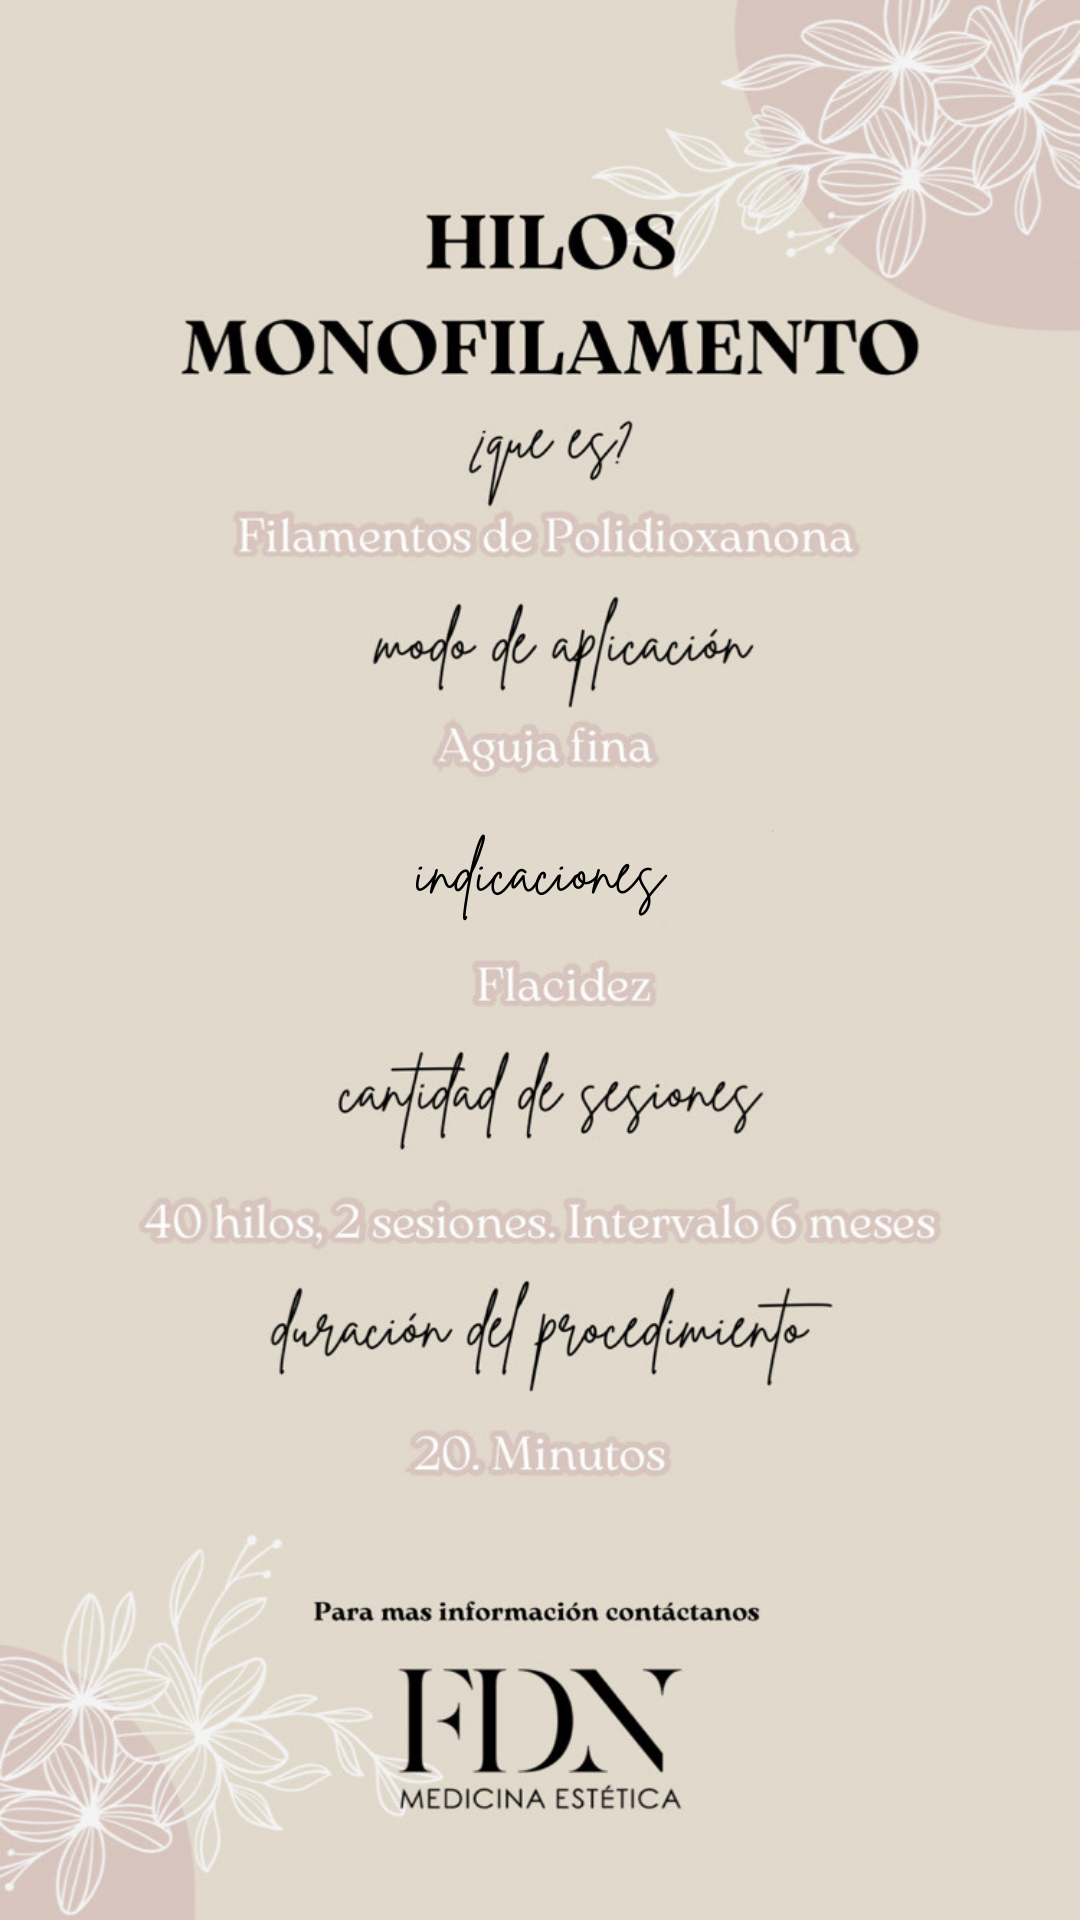 HILOS
MONOFILAMENTO
¿que es?
Filamentos de Polidioxanona
modo de aplicación
Aguja fina
indicaciones
Flacidez
cantidad de sesiones
40 hilos, 2 sesiones. Intervalo 6 meses
duración del procedimiento
20. Minutos
Para mas información contáctanos
FDN
MEDICINA ESTÉTICA